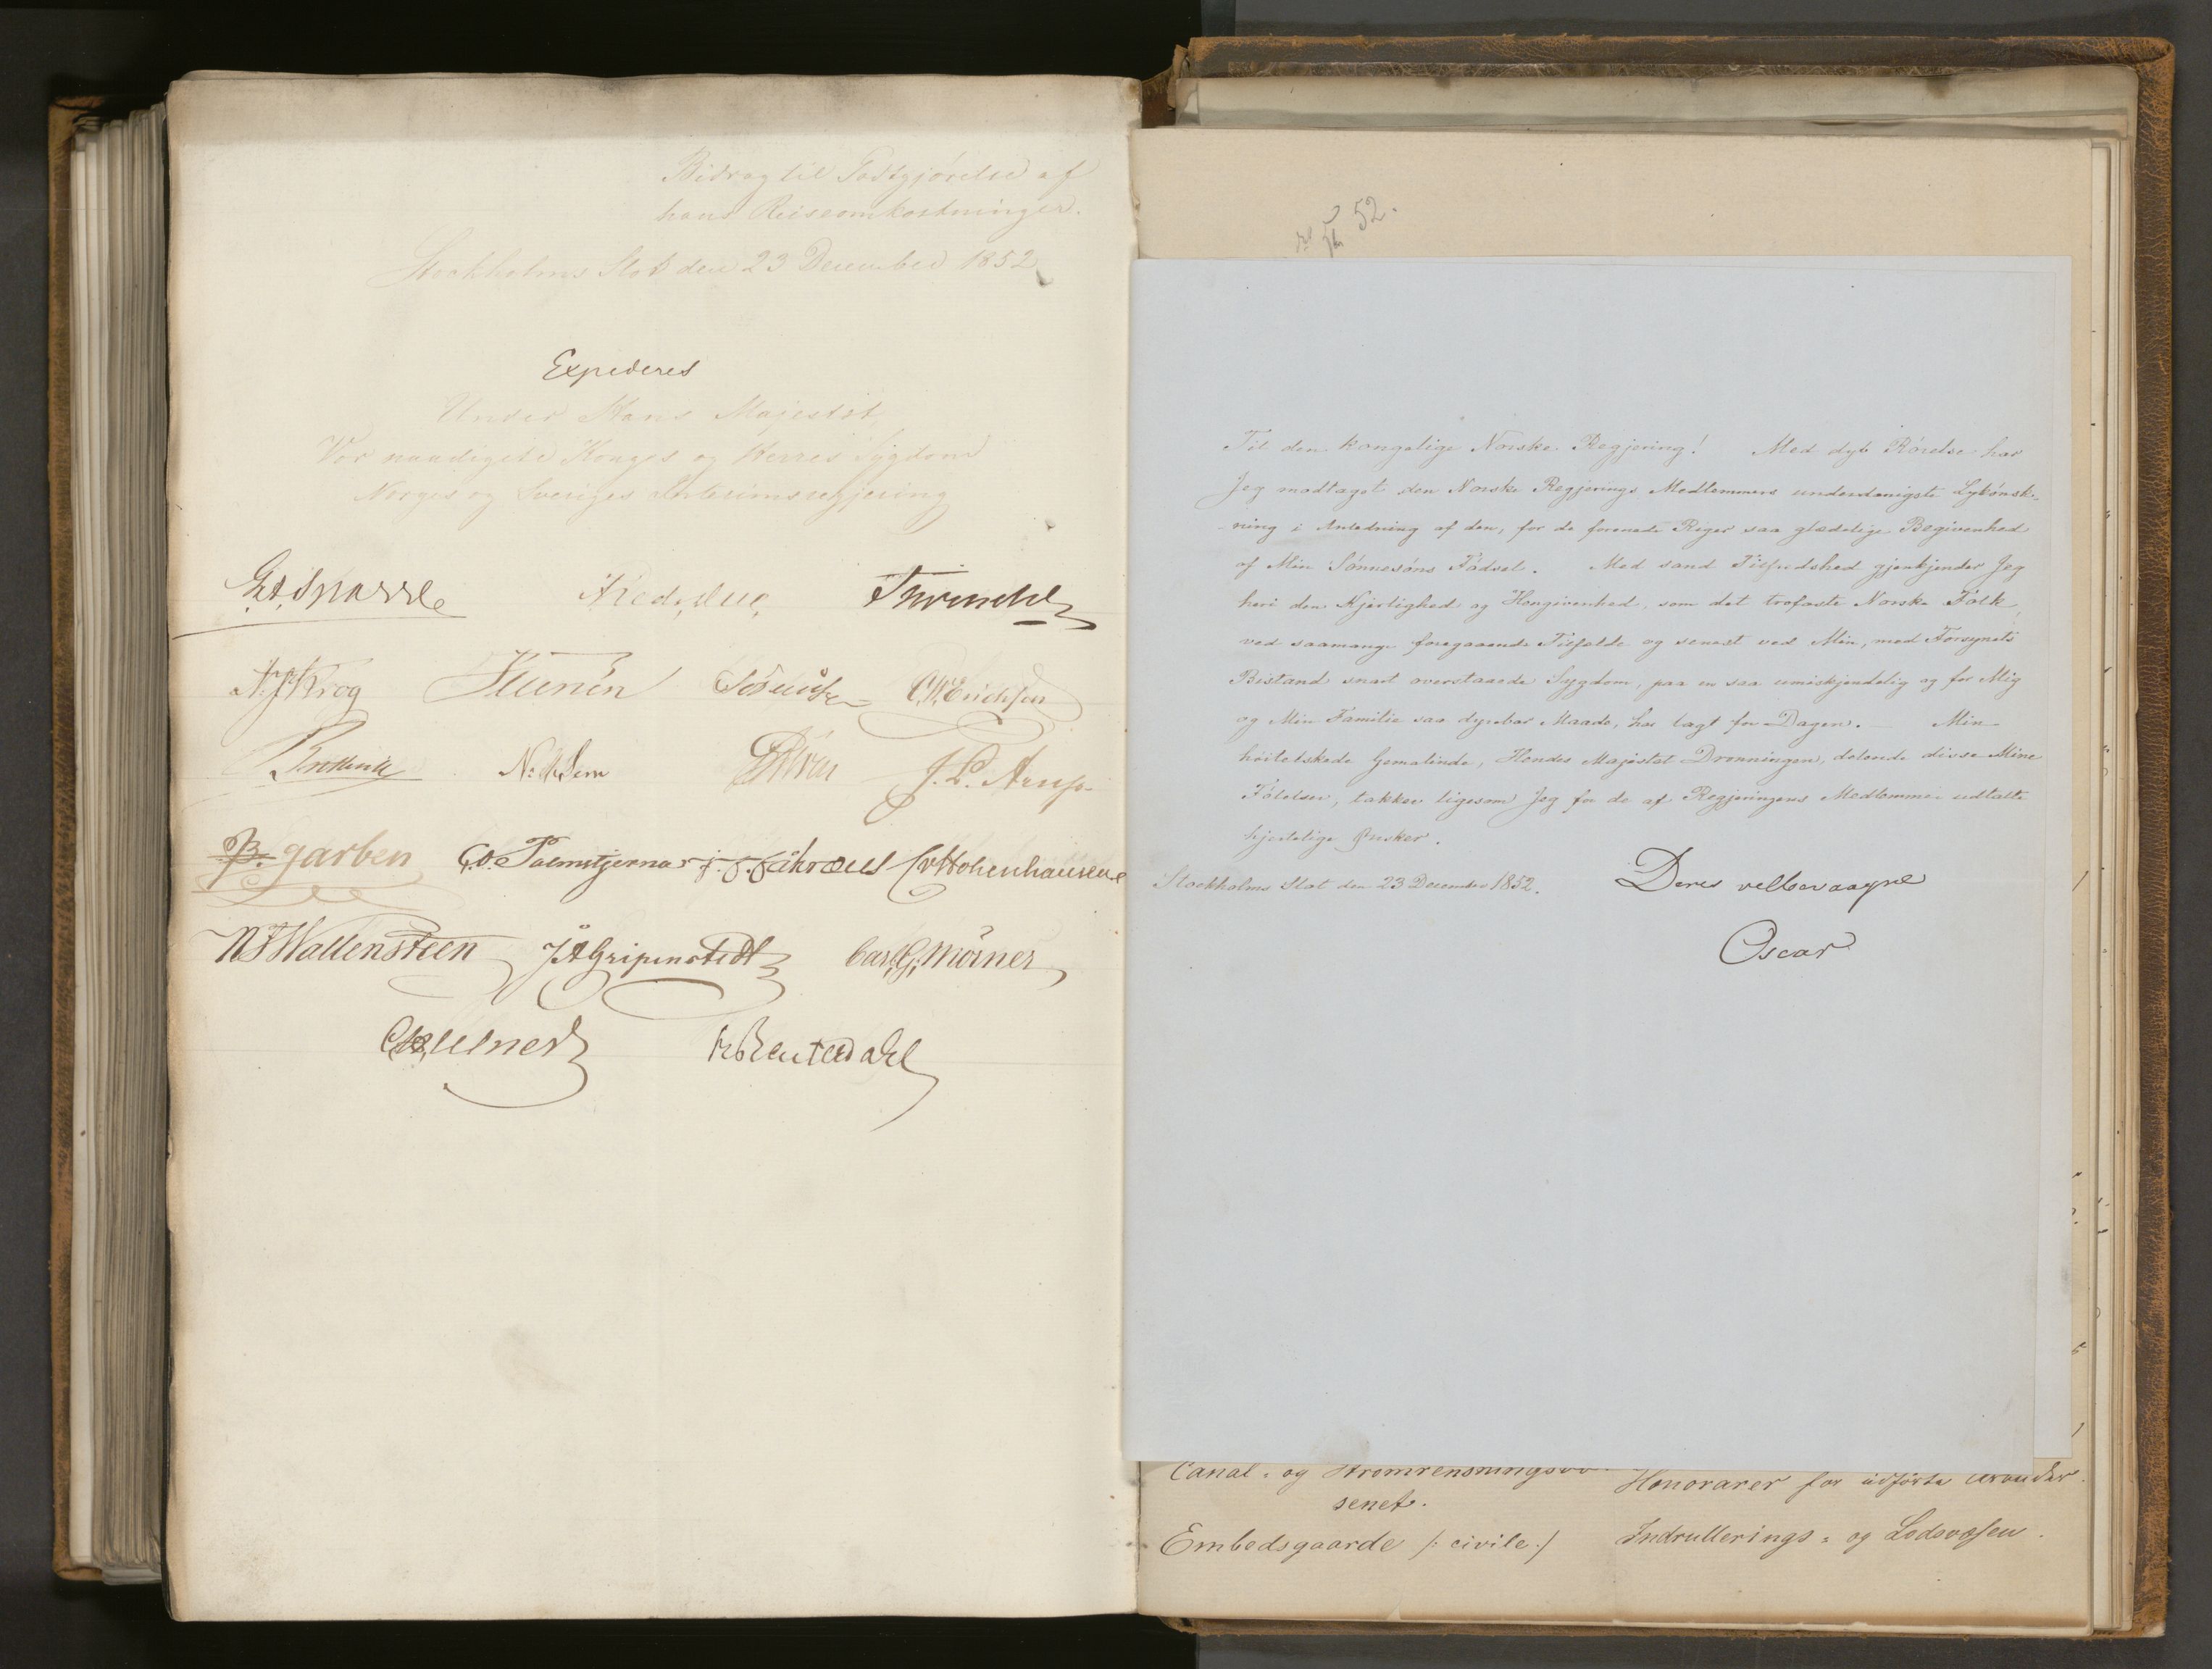 Bidrag til Godtgjörelse af
hans Reiseomkostninger.
Stockholms Slot den 23 December 1852
Expederes
Under Hans Majestæt,
Vor naadigste Konges og Herres Sygdom
Norges og Sveriges Interimsregjering
G A Sparre Due
A. J. Krog Iherén Sörenssen C. Erichsen
Bretteville J. L. Arup
B. Garben G. O. Palmstjerna J. F. Fåhræus C v Hohenhausen
N F Wallensteen J A Gripenstedt Carl G: Mörner
H Reuterdahl
52.
Til den kongelige Norske Regjering! Med dyb Rörelse har
Jeg modtaget den Norske Regjerings Medlemmers underdanigste Lykönsk-
ning i Anledning af den, for de forenede Riger saa glædelige Begivenhed
af Min Sönnesöns Födsel. Med sand Tilfredshed gjenkjender Jeg
heri den Kjerlighed og Hengivenhed, som det trofaste Norske Folk
ved saamange foregaaende Tilfælde og senest ved Min, med Forsynets
Bistand snart overstaaede Sygdom, paa en saa umiskjendelig og for Mig
og Min Familie saa dyrebar Maade, har lagt for Dagen. Min
höitelskede Gemalinde, Hendes Majestæt Dronningen, delende disse Mine
Fölelser, takker ligesom Jeg for de af Regjeringens Medlemmer udtalte
hjertelige Ønsker.
Stockholms Slot den 23 December 1852. Deres velbevaagne
Oscar
Canal- og Strömrensningsvæ-
senet.
Honorarer for udförte Arbeider.
Embedsgaarde /: civile :/
Indrullerings- og Lodsvæsen.